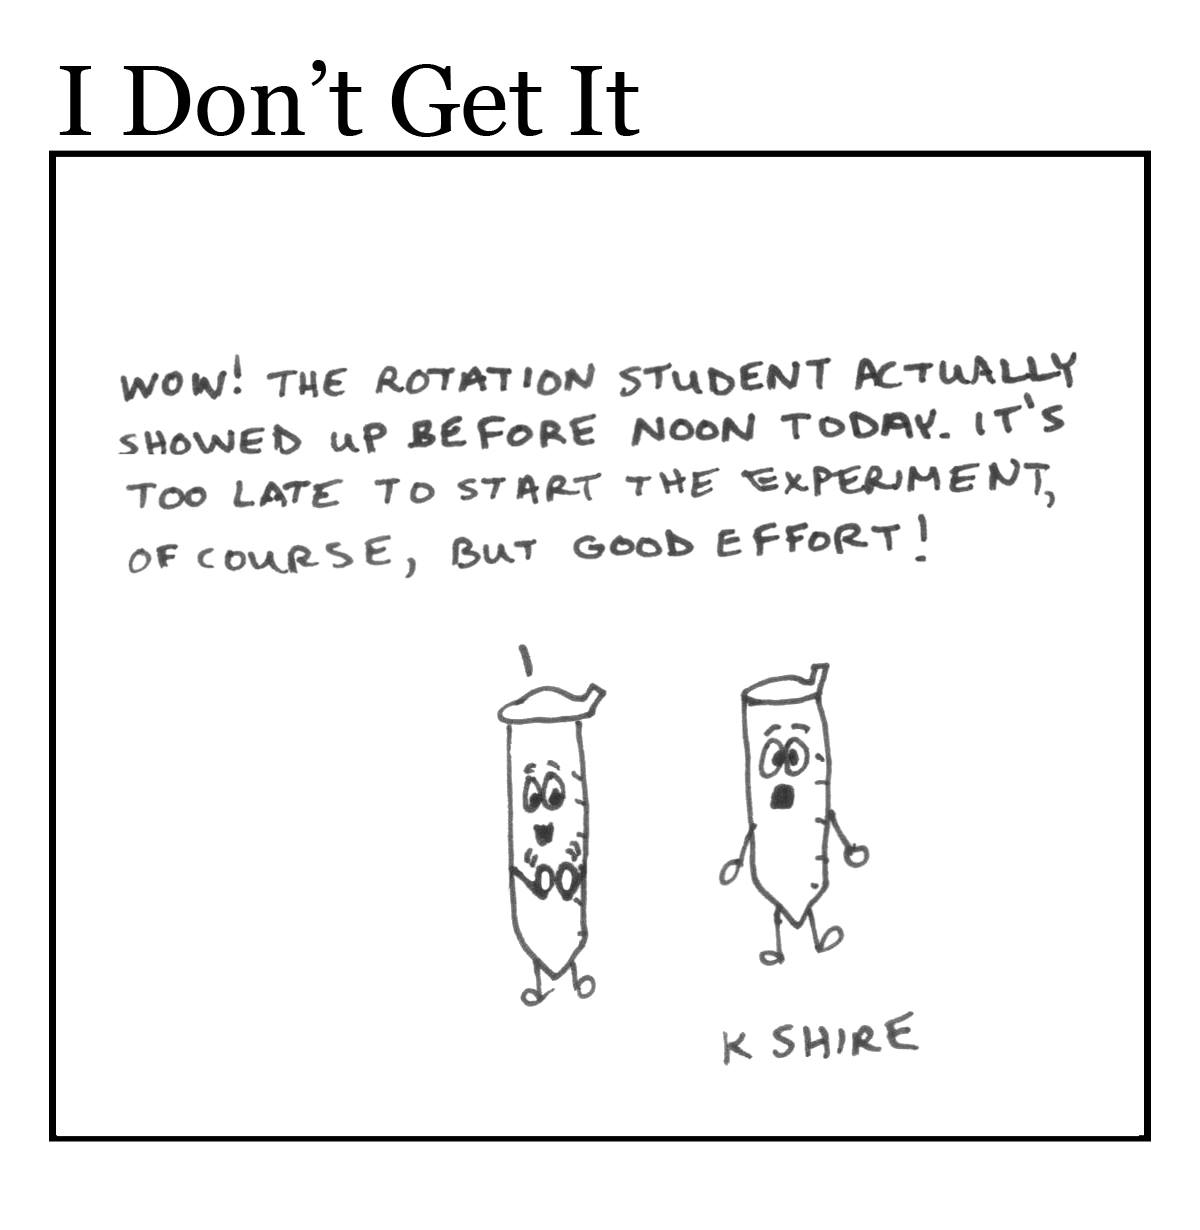 I Don't Get It
WOW! THE ROTATION STUDENT ACTUALLY
SHOWED UP BEFORE NOON TODAY. IT'S
TOO LATE TO START THE EXPERIMENT,
OF COURSE, BUT GOOD EFFORT!
K SHIRE